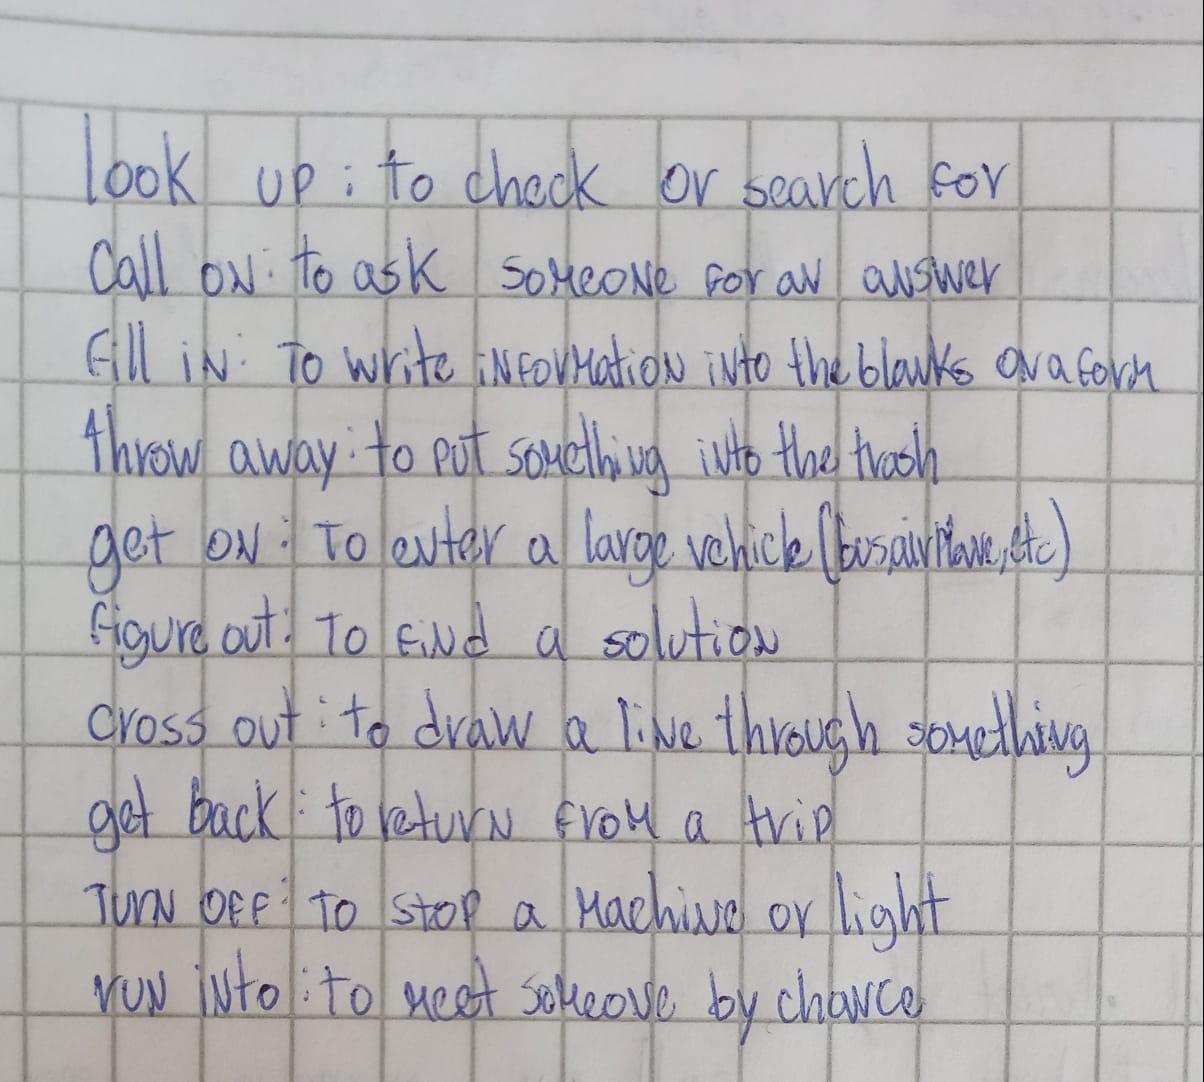 look up: to check or search for
Call on: to ask someone for an answer
fill in: To write information into the blanks on a form
throw away: to put something into the trash
get on: To enter a large vehicle (bus, airplane, etc)
figure out: To find a solution
cross out: to draw a line through something
get back: to return from a trip
Turn off: To stop a machine or light
run into: to meet someone by chance